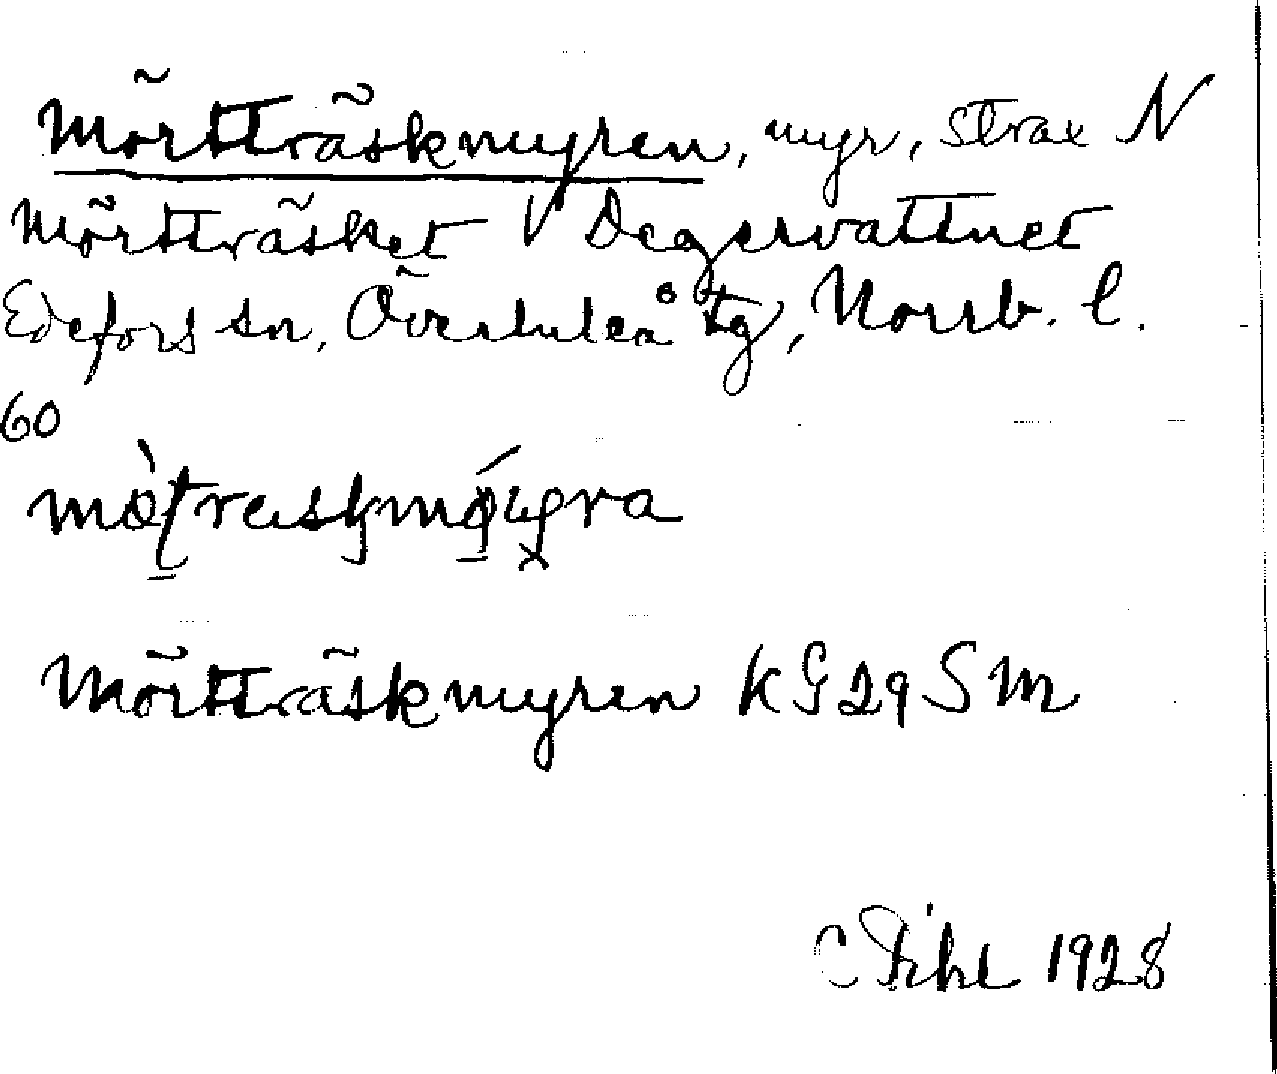 Mörtträskmyren, myr, strax N
Mörtträsket V Degervattnet
Edefors sn, Överluleå tg, Norrb. l.
60
Mörtträskmyren KG29SM
C Pihl 1928